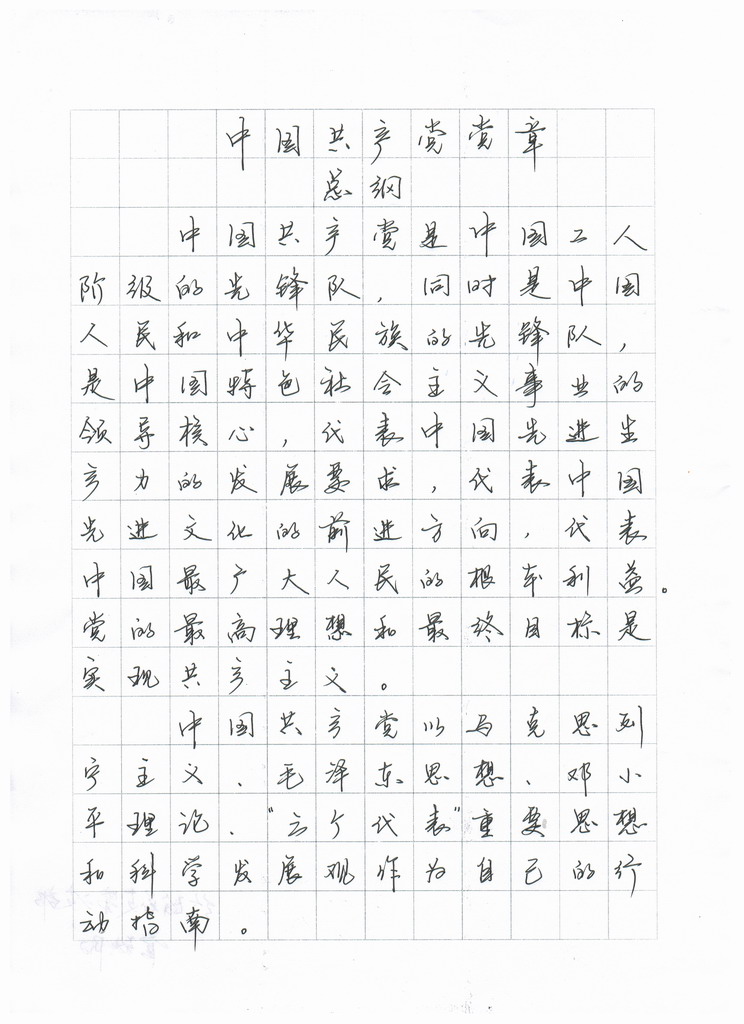 中国共产党党章
总纲
中国共产党是中国工人
阶级的先锋队，同时是中国
人民和中华民族的先锋队，
是中国特色社会主义事业的
领导核心，代表中国先进生
产力的发展要求，代表中国
先进文化的前进方向，代表
中国最广大人民的根本利益。
党的最高理想和最终目标是
实现共产主义。
中国共产党以马克思列
宁主义、毛泽东思想、邓小
平理论、“三个代表”重要思想
和科学发展观作为自己的行
动指南。